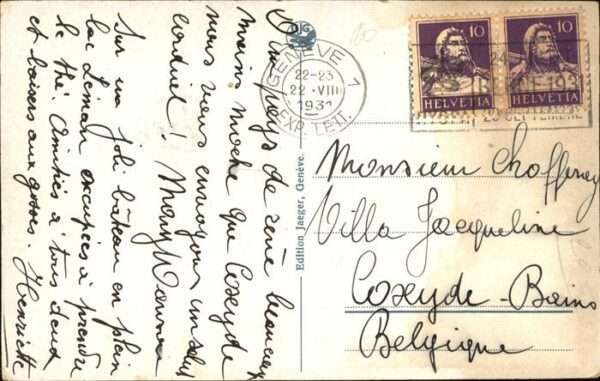 D'un pays de rêve beaucoup
moins moche que Coxyde
nous vous envoyons un salut
cordial !
Sur un joli bâteau en plein
lac Léman occupées à prendre
le thé. Amitiés à tous deux
et baisers aux gosses
Henriette
GENÈVE 1
22-23
22.VIII
1931
EXP. LETT.
10
HELVETIA
10
HELVETIA
Edition Jaeger, Genève.
Monsieur
Villa Jacqueline
Coxyde-Bains
Belgique